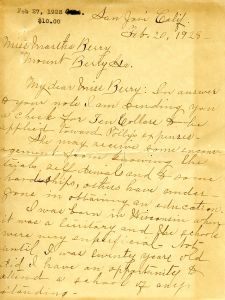 Feb 27, 1928
$10.00
San José Calif.
Feb. 20, 1928 -
Miss Martha Berry
Mount Berry Ga.
My dear Miss Berry: In answer
to your note I am sending you
a check for Ten Dollars to be
applied toward Polly's expenses -
She may receive some encour-
agement from knowing the
trials, self denials and to some
hardships, others have under-
gone in obtaining an education.
I was born in Wisconsin when
it was a territory and the schools
were very superficial. Not
until I was twenty years old
did I have an opportunity to
attend a school of any
standing -